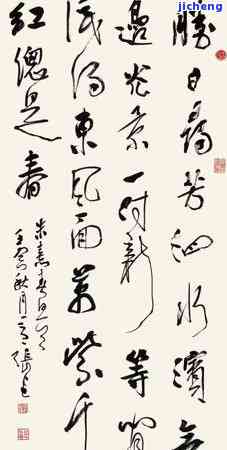 jicheng
勝日尋芳泗水濱無
邊光景一時新等閒
識得東風面萬紫千
紅總是春
朱熹春日
秋月